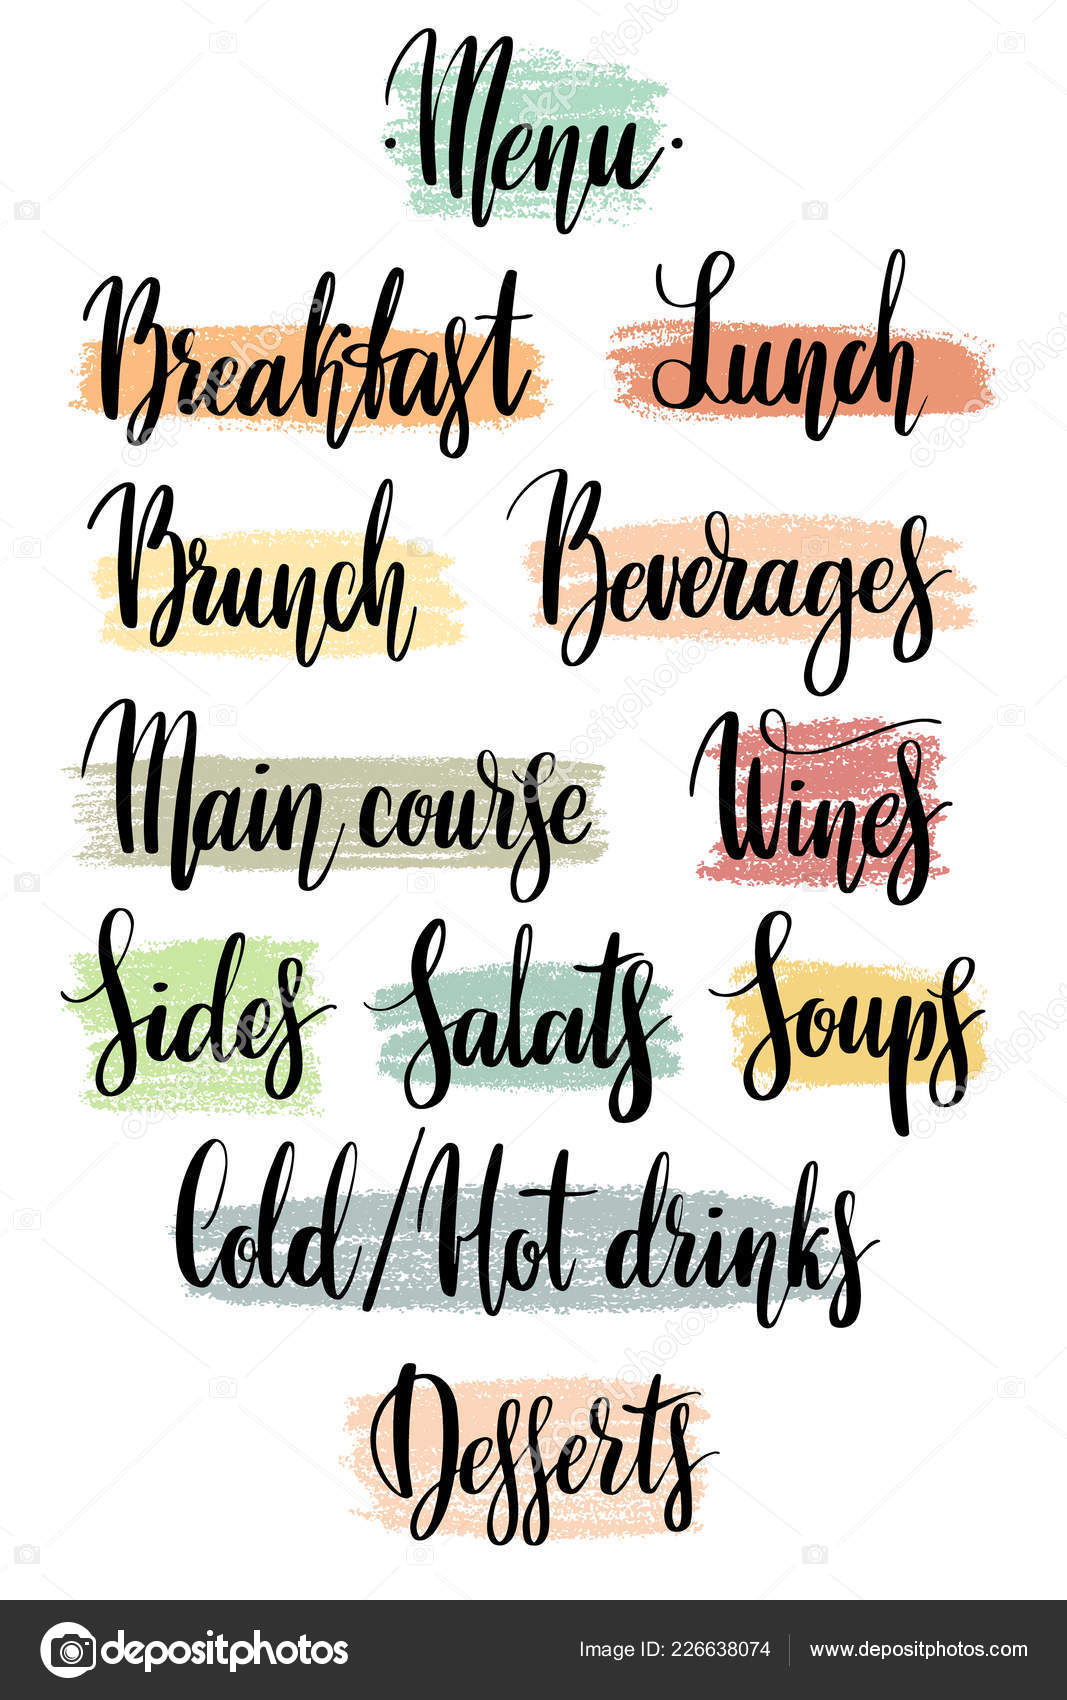 ·Menu·
Breakfast Lunch
Brunch Beverages
Main course Wines
Sides Salats Soups
Cold/Hot drinks
Desserts
depositphotos Image ID: 226638074 www.depositphotos.com